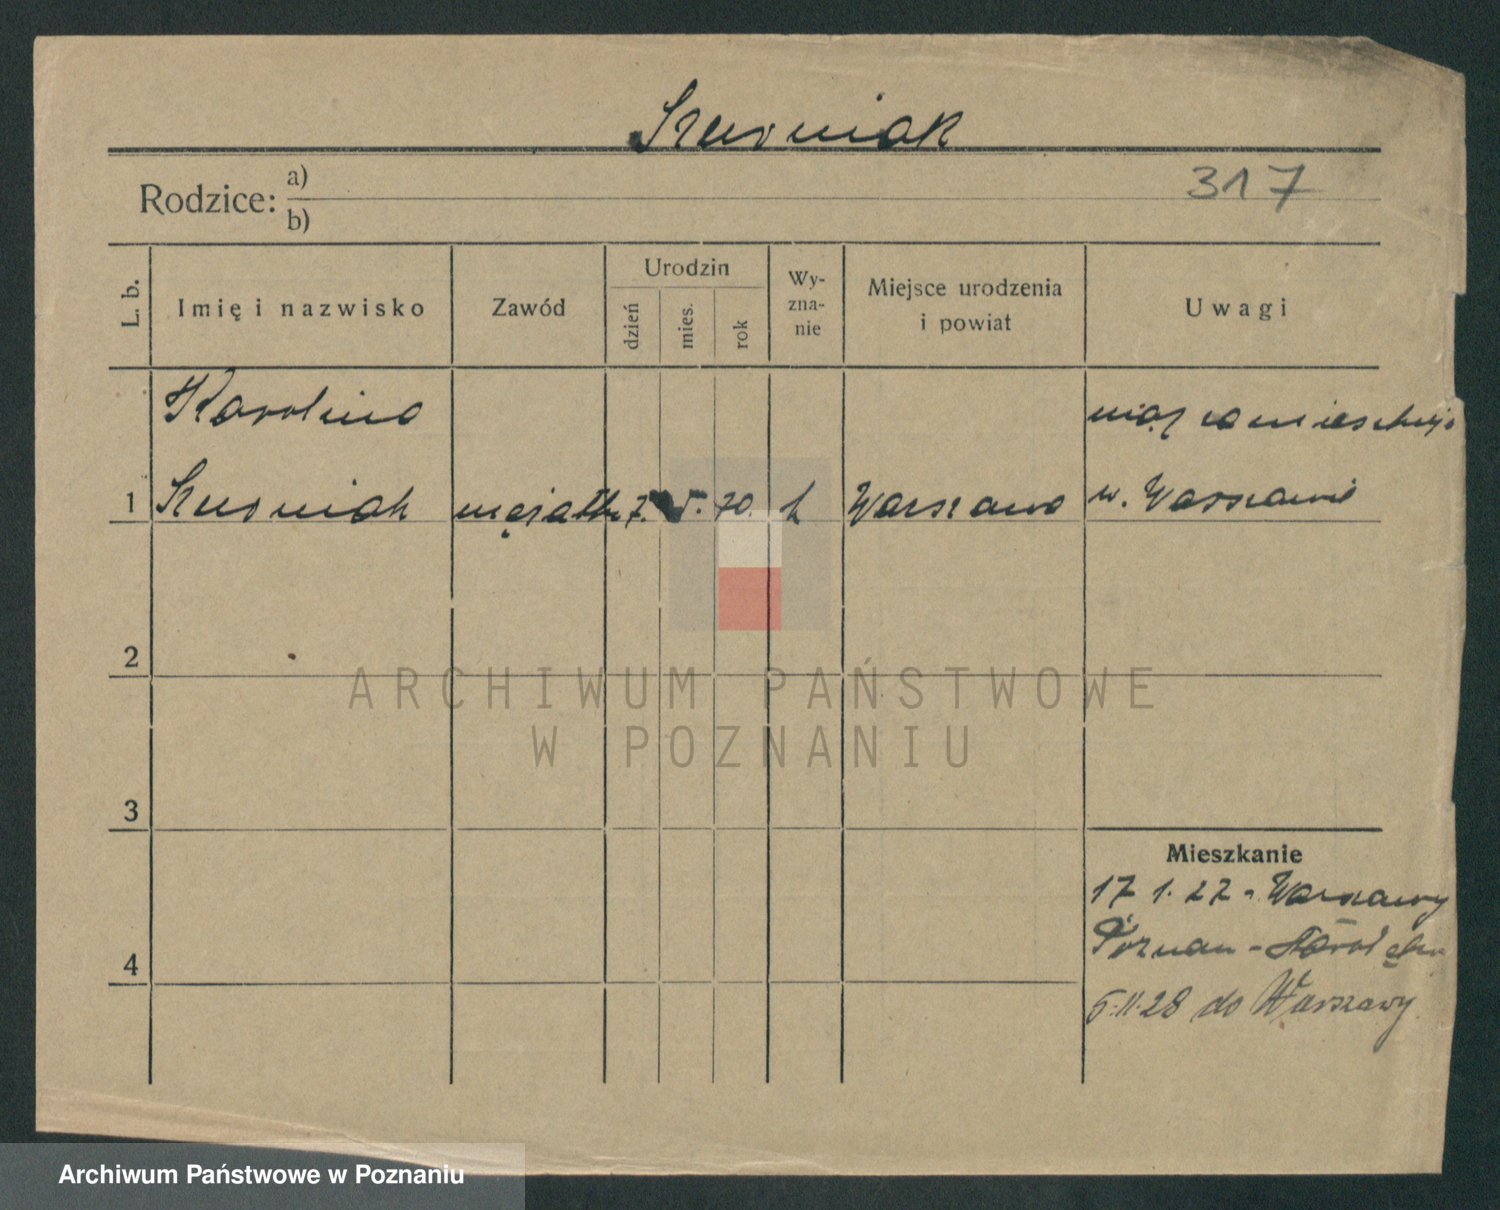 Rodzice: a)
b)
317
L. b.
Imię i nazwisko
Zawód
Urodzin
dzień
mies.
rok
Wy-
zna-
nie
Miejsce urodzenia
i powiat
Uwagi
Karolina
mąż zamieszkuje
1 7. 5. 70. Warszawa w. Warszawie
2
3
4
Mieszkanie
17 1. 27 - Warszawy
Poznan -
6.11.28 do Warszawy.
ARCHIWUM PAŃSTWOWE
W POZNANIU
Archiwum Państwowe w Poznaniu